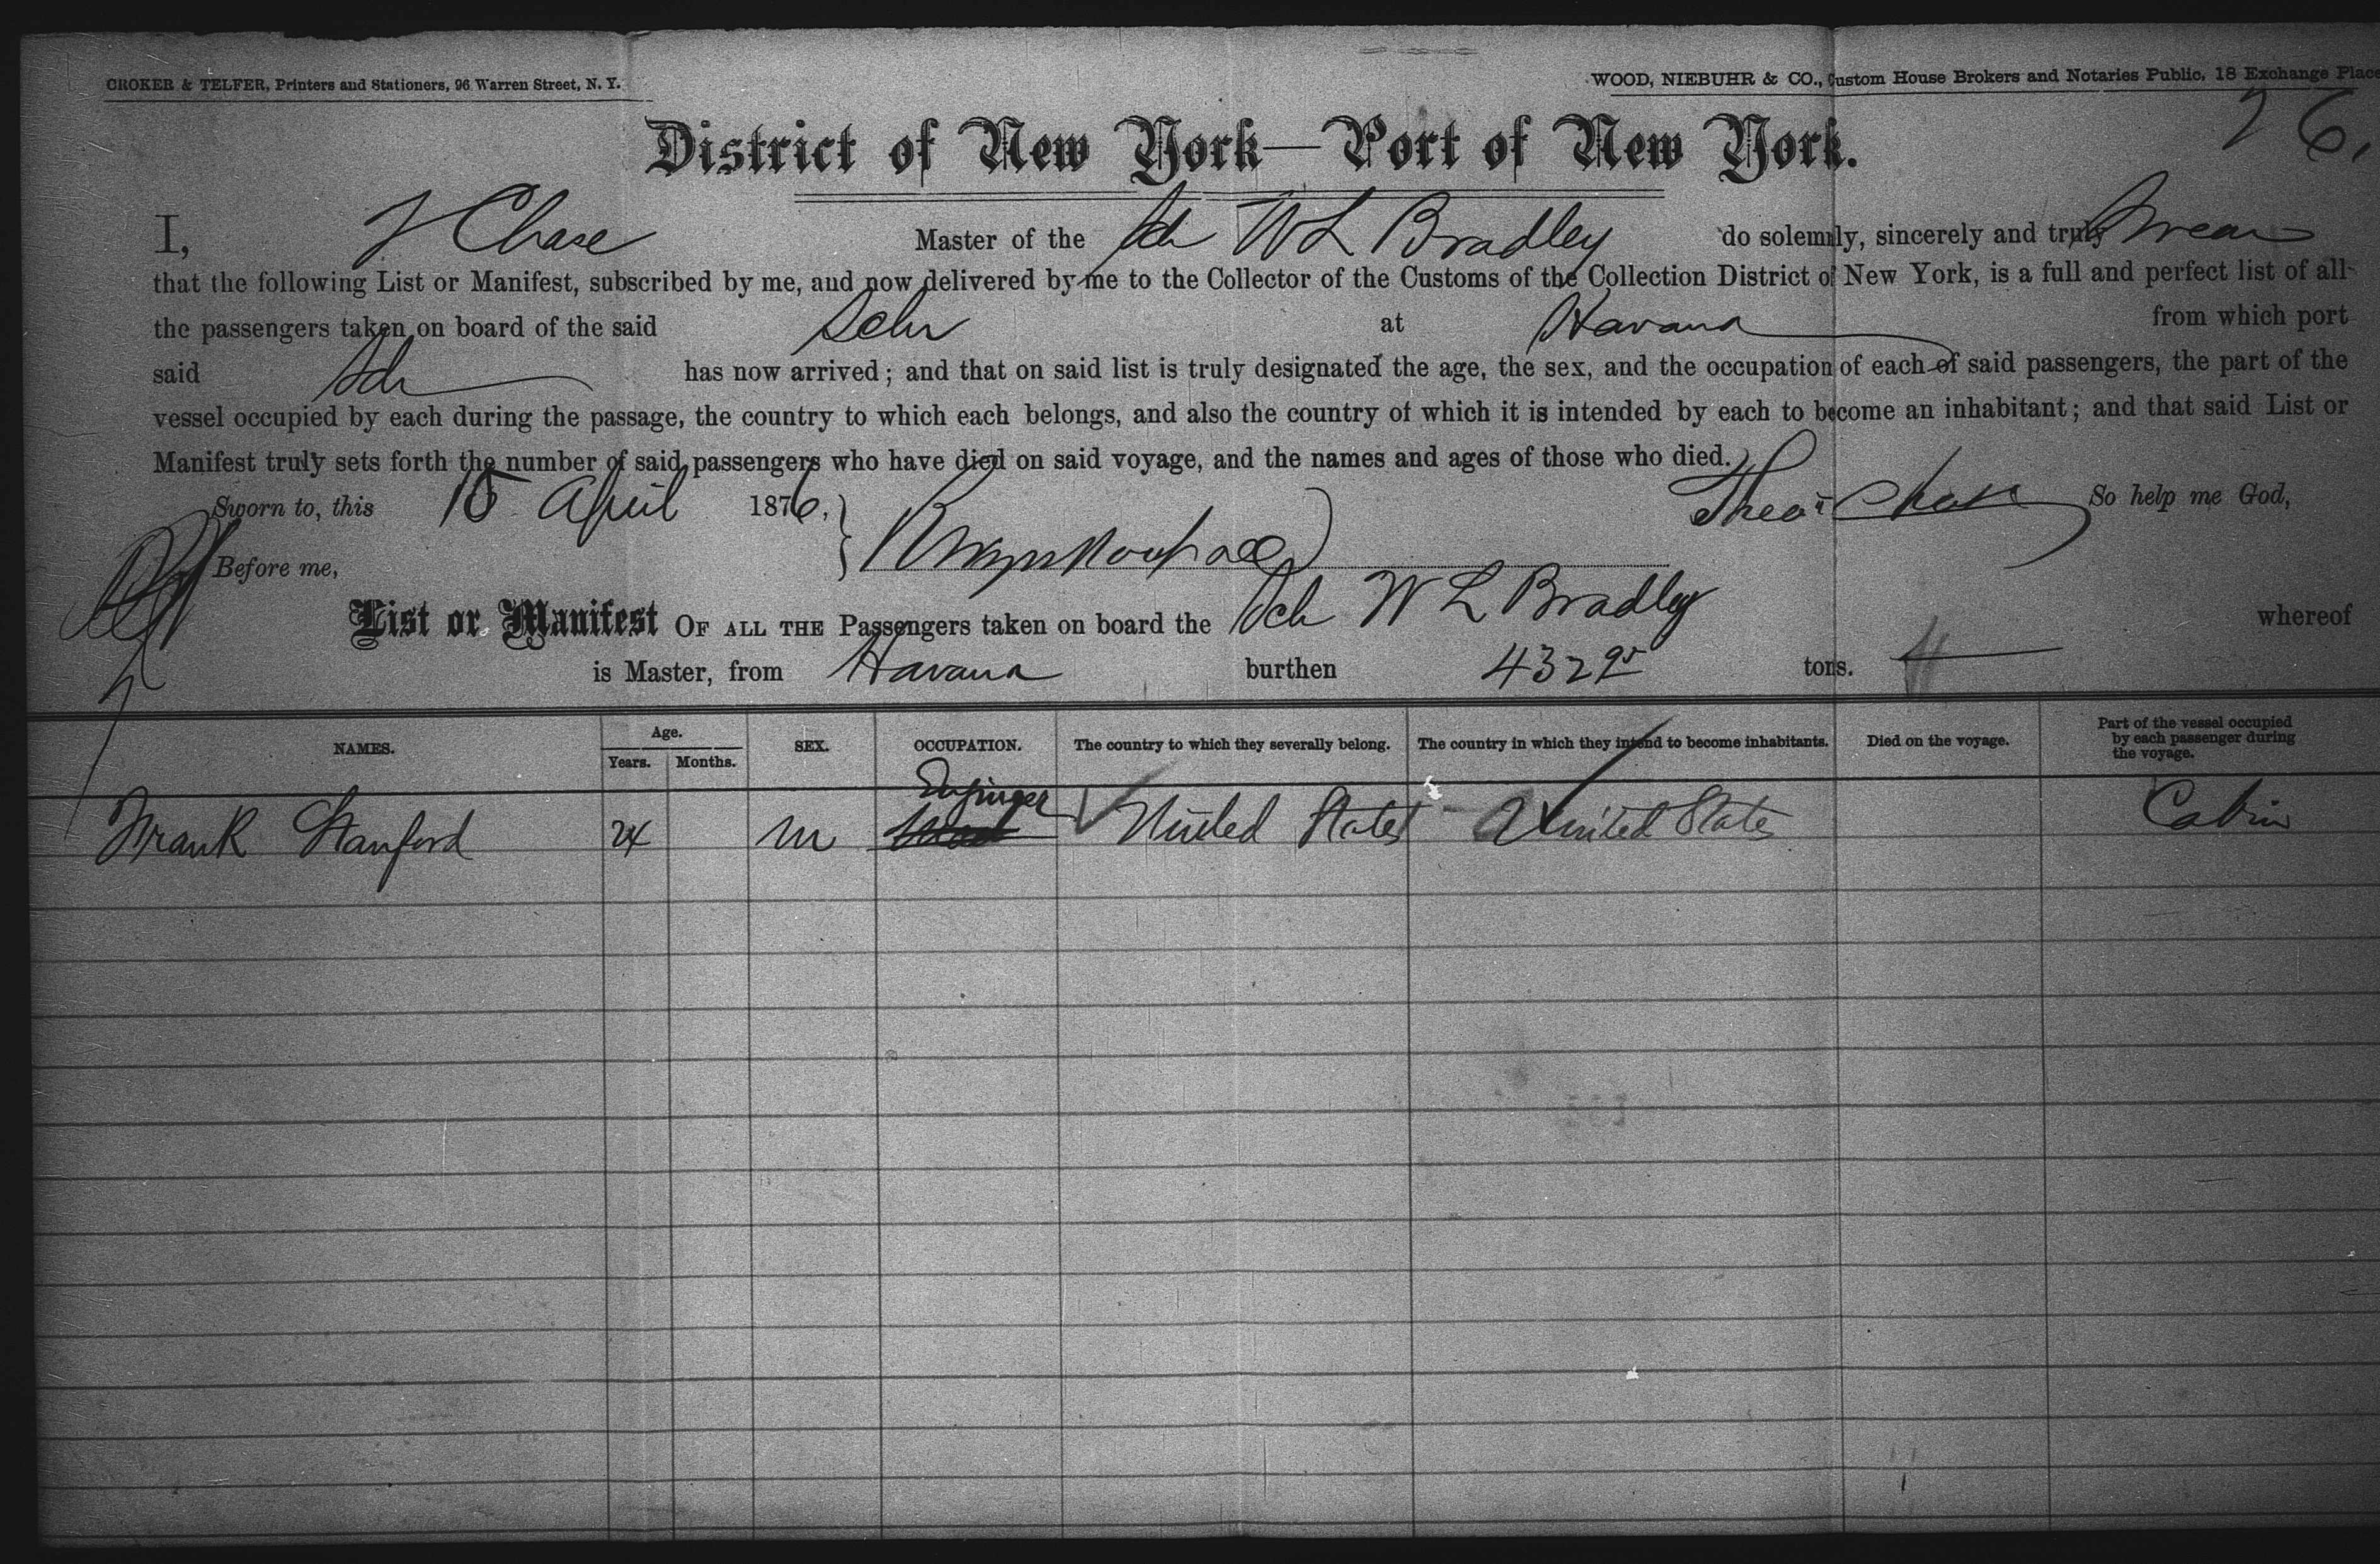 CROKER & TELFER, Printers and Stationers, 96 Warren Street, N. Y. WOOD, NIEBUHR & CO., Custom House Brokers and Notaries Public, 18 Exchange Place
76.
District of New York—Port of New York.
I, T Chase Master of the Sch W L Bradley do solemnly, sincerely and truly Swear
that the following List or Manifest, subscribed by me, and now delivered by me to the Collector of the Customs of the Collection District of New York, is a full and perfect list of all
the passengers taken on board of the said Schr at Havana from which port
said Sch has now arrived; and that on said list is truly designated the age, the sex, and the occupation of each of said passengers, the part of the
vessel occupied by each during the passage, the country to which each belongs, and also the country of which it is intended by each to become an inhabitant; and that said List or
Manifest truly sets forth the number of said passengers who have died on said voyage, and the names and ages of those who died.
Sworn to, this 15 April 1876, Chase So help me God,
Before me,
List or Manifest OF ALL THE Passengers taken on board the Sch W L Bradley whereof
is Master, from Havana burthen 432 95 tons.
NAMES. Age. Years. Months. SEX. OCCUPATION. The country to which they severally belong. The country in which they intend to become inhabitants. Died on the voyage. Part of the vessel occupied by each passenger during the voyage.
Frank Stanford 24 M Enginger United States United States Cabin